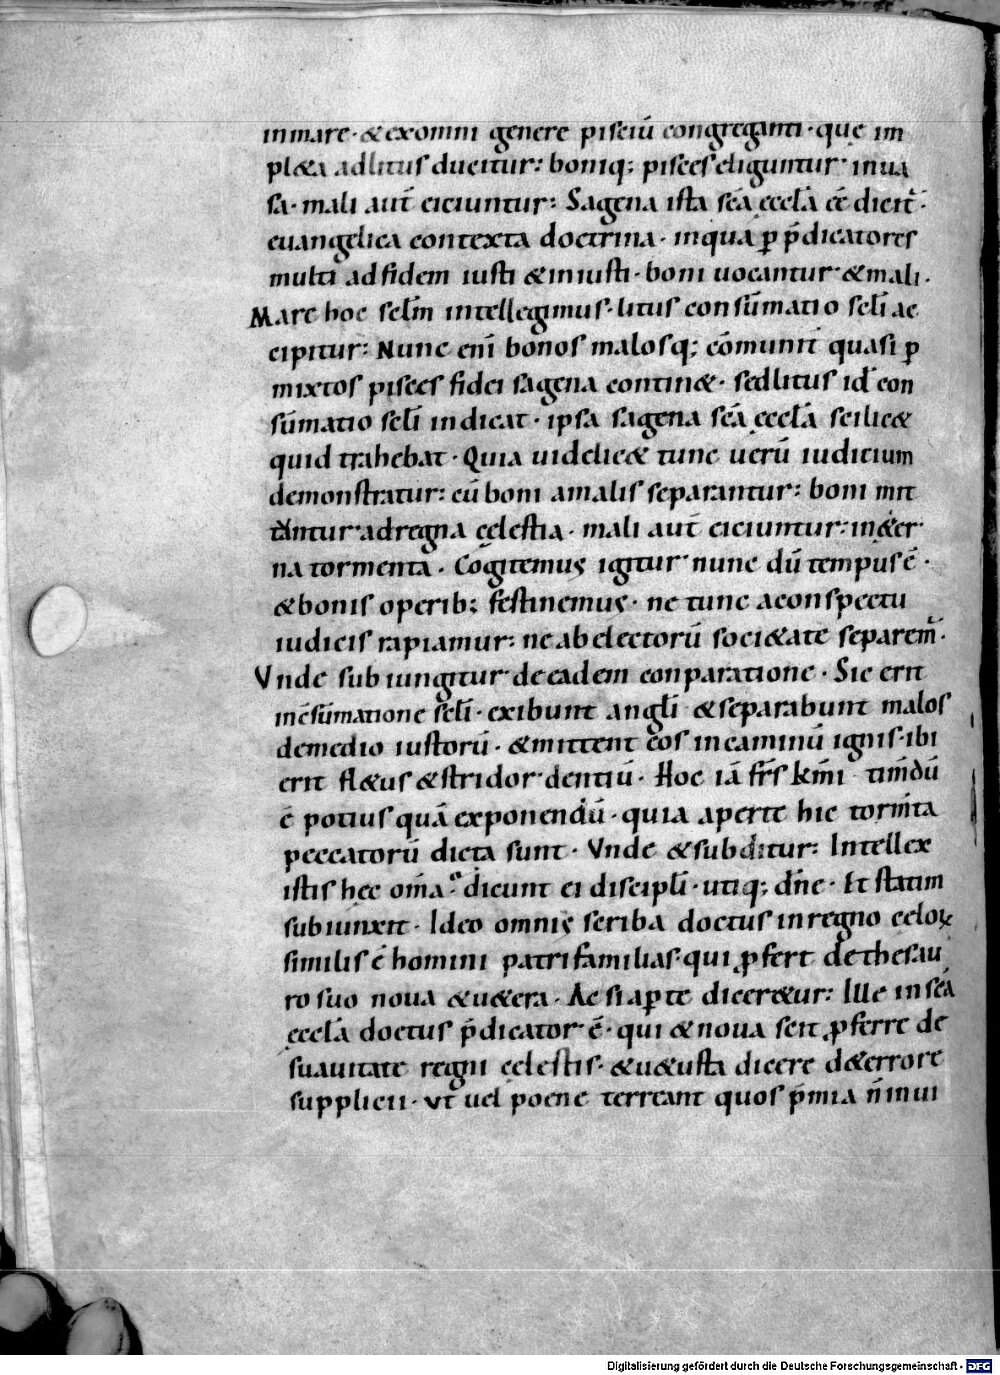 inmare · & exomni genere pisciū congreganti · que im
pl&a adlitus ducitur: boniq; pisces eliguntur inua
sa · mali aut̄ eiciuntur: Sagena ista sc̄a ęccla ee dicit̄ ·
euangelica contexta doctrina · inqua ꝑ p̄dicatores
multi adfidem iusti & iniusti · boni uocantur & mali ·
Mare hoc scl̄m intellegimus · litus consūmatio scl̄i ac
cipitur: Nunc eni bonos malosq; cōmunit quasi ꝑ
mixtos pisces fidei sagena contin& · sedlitus id con
sūmatio scl̄i indicat · ipsa sagena sc̄a ęccla scilic&
quid trahebat · Quia uidelic& tunc uerū iudicium
demonstratur: cū boni amalis separantur: boni mit
tantur adregna cęlestia · mali aut̄ eiciuntur: in&er
na tormenta · Cogitemus igitur nunc dū tempus ē ·
& bonis operib; festinemus · ne tunc aconspectu
iudicis rapiamur: ne ab electorū soci&ate separem̄ ·
Vnde subiungitur de eadem conparatione · Sic erit
incsūmatione scl̄i · exibunt angl̄i & separabunt malos
demedio iustorū · & mittent eos incaminū ignis · ibi
erit fl&us & stridor dentiū · Hoc iā fr̄s km̄i tim̄dū
ē potius quā exponendū · quia aperte hic torm̄ta
peccatorū dicta sunt · Vnde & subditur: Intellex
istis hec om̄a · dicunt ei discipl̄i · utiq; dn̄e · Et statim
subiunxit · Ideo omnis scriba doctus inregno celoꝝ
similis ē homini patrifamilias · qui ꝓfert de thesau
ro suo noua & u&era · Ac si aꝑte dicer&ur: Ille in sc̄a
ęccla doctus p̄dicator ē · qui & noua scit ꝓferre de
suauitate regni cęlestis · & u&usta dicere d&errore
supplicii · vt uel poene terreant quos p̄mia n̄ inui
Digitalisierung gefördert durch die Deutsche Forschungsgemeinschaft - DFG